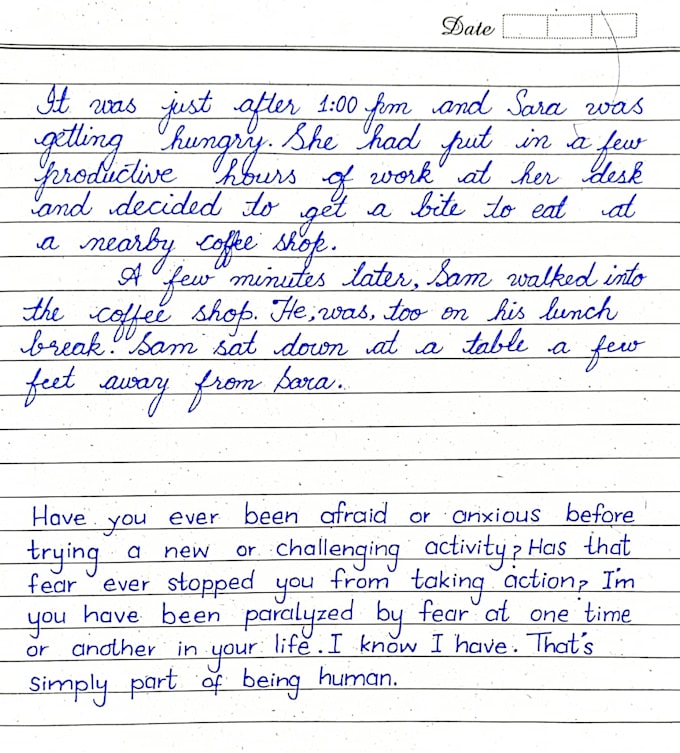 Date
It was just after 1:00 pm and Sara was
getting hungry. She had put in a few
productive hours of work at her desk
and decided to get a bite to eat at
a nearby coffee shop.
A few minutes later, Sam walked into
the coffee shop. He, was, too on his lunch
break. Sam sat down at a table a few
feet away from Sara.
Have you ever been afraid or anxious before
trying a new or challenging activity? Has that
fear ever stopped you from taking action? I'm
you have been paralyzed by fear at one time
or another in your life. I know I have. That's
simply part of being human.